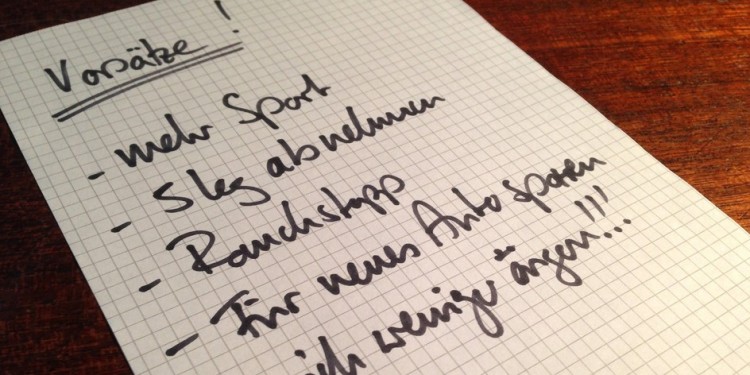 Vorsätze !
- mehr Sport
- 5kg abnehmen
- Rauchstopp
- Für neues Auto sparen
ich weniger ärgern!!!